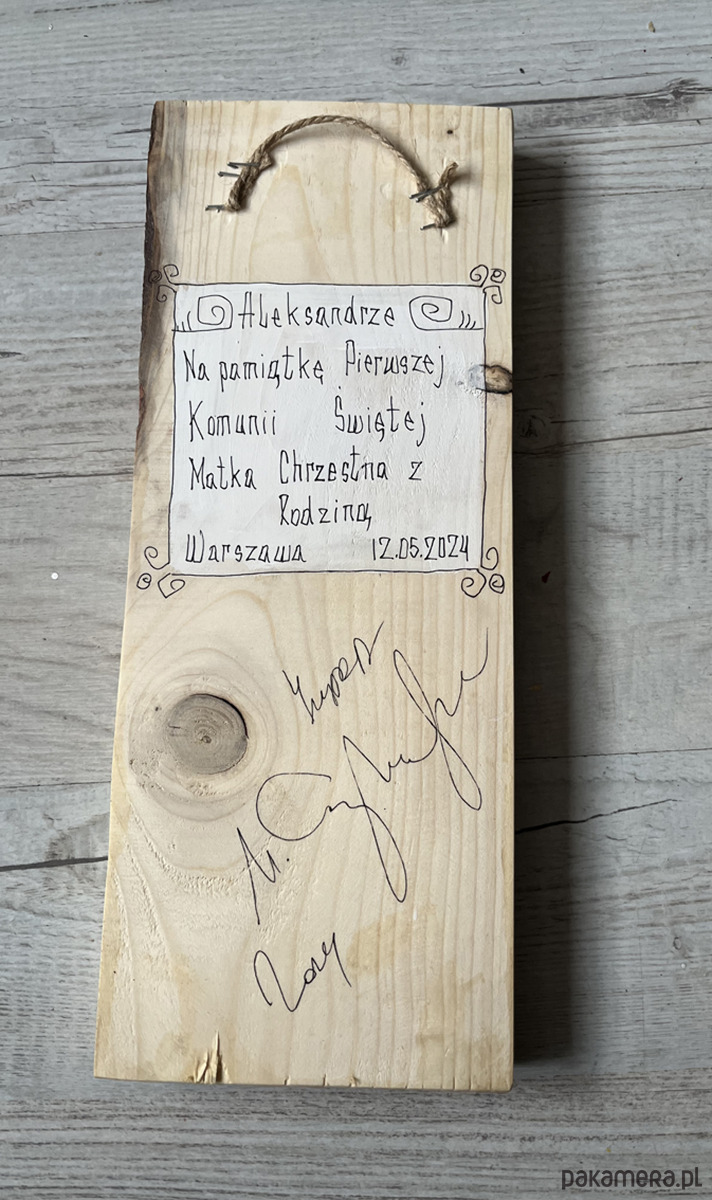 Aleksandrze
Na pamiątkę Pierwszej
Komunii Świętej
Matka Chrzestna z
Rodziną
Warszawa 12.05.2024
pakamera.pl